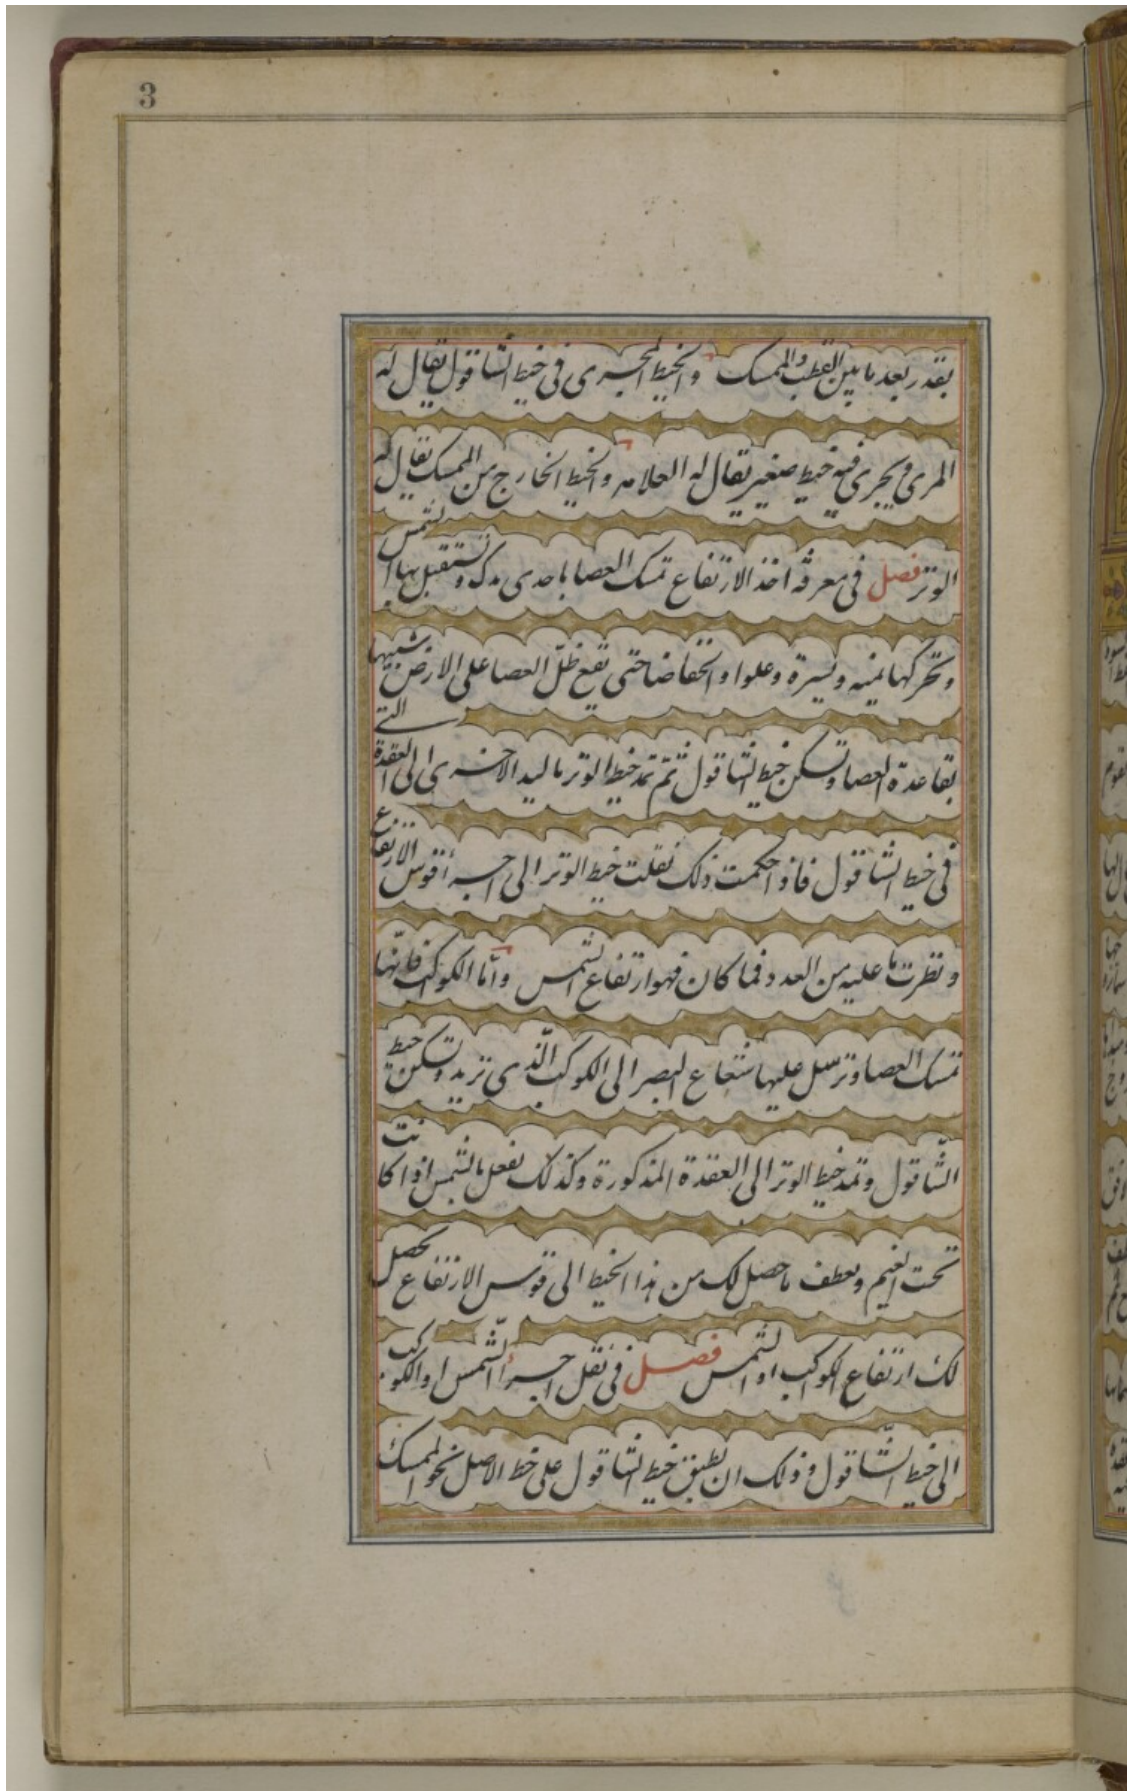 3
بقدر بعد ما بين القطب والممسك والخيط المجرى فى خيط الشاقول يقال له
المرى ويجرى فيه خيط صغير يقال له العلامه والخيط الخارج من الممسك يقال له
الوتر فصل فى معرفة اخذ الارتفاع تمسك العصا باحدى يدك وتستقبل بها الشمس
وتحركها يمنيه ويسيرة وعلوا وانخفاضا حتى يقع ظلّ العصا على الارض شبيها
بقاعدة العصا وتسكن خيط الشاقول ثمّ تمد خيط الوتر باليد الاخرى الى العقدة التى
فى خيط الشاقول فاذا حكمت ذلك نقلت خيط الوتر الى اجزأ قوس الارتفاع
ونظرت ما عليه من العدد فما كان فهو ارتفاع الشمس وأمّا الكواكب فانّها
تمسك العصا وترسل عليها شعاع البصر الى الكوكب الّذى تريد وتسكن خيط
الشّاقول وتمد خيط الوتر الى العقدة المذكورة وكذلك نفعل بالشمس اذا كانت
تحت الغيم وتعطف ما حصل لك من هذا الخيط الى قوس الارتفاع يحصل
لك ارتفاع الكواكب او الشمس فصل فى نقل اجزأ الشّمس او الكوكب
الى خيط الشّاقول وذلك ان تطبق خيط الشاقول على خط الاصل نحو الممسك